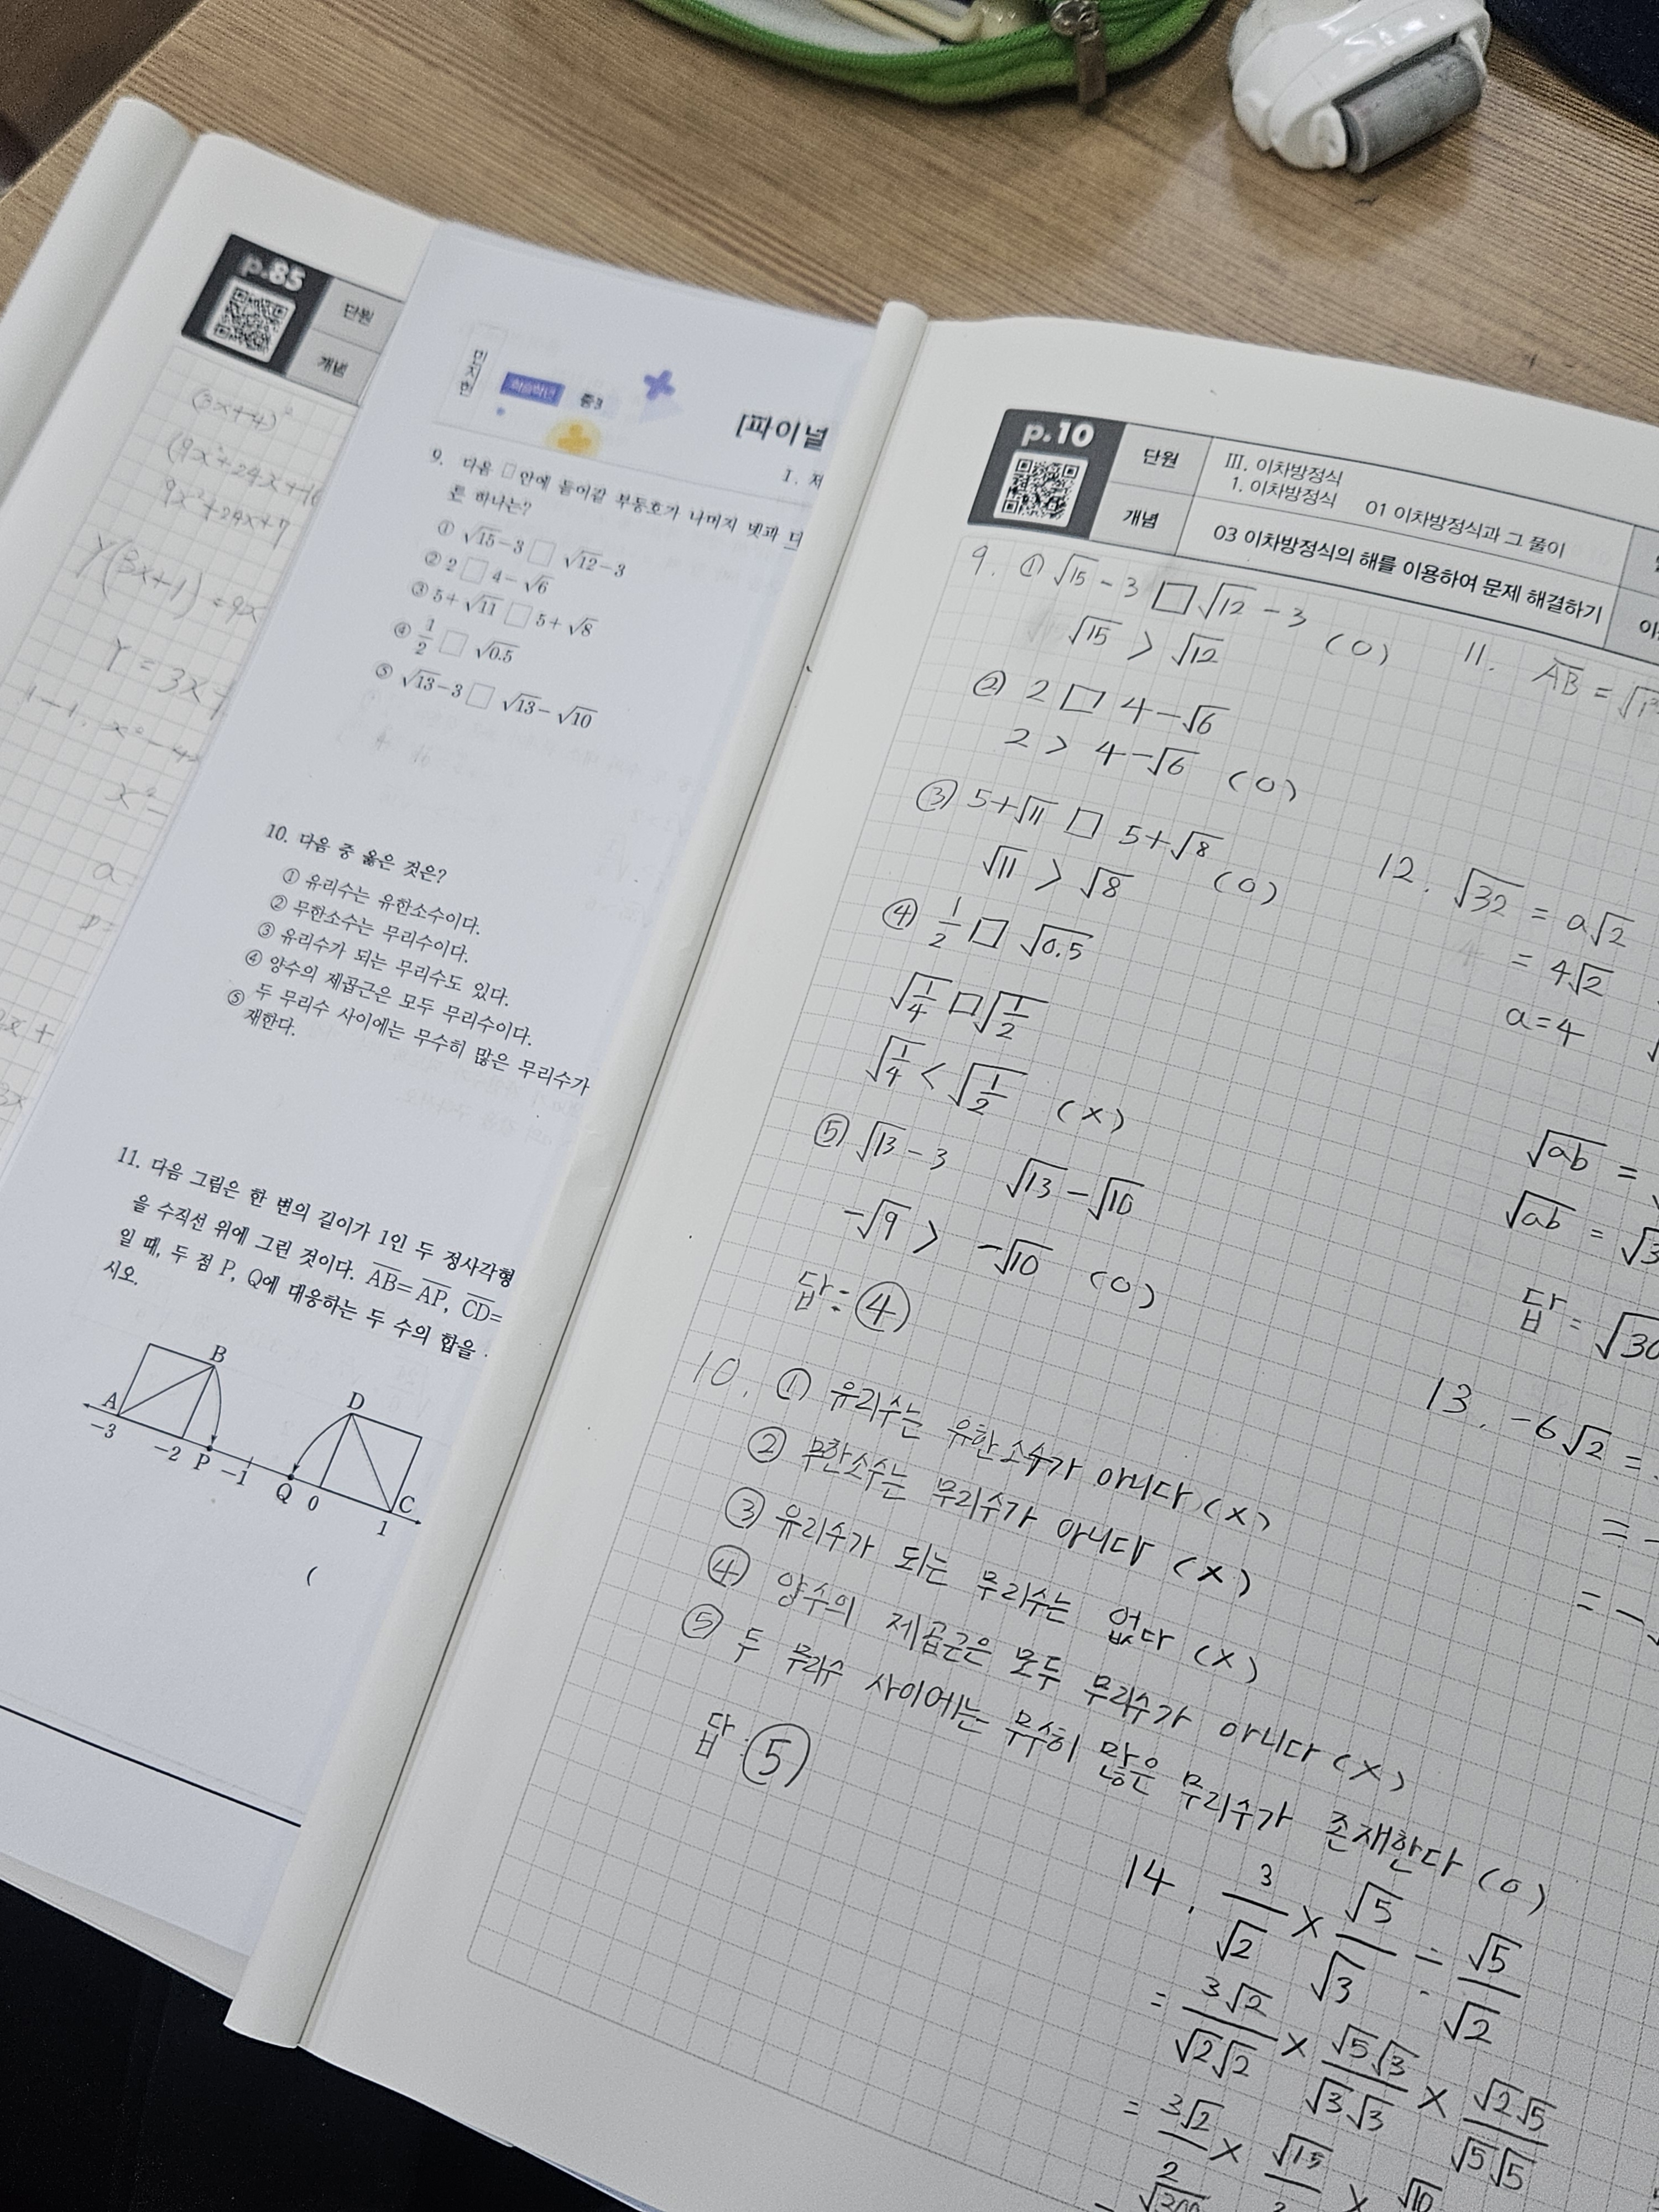 p.85
단원
개념
(3x+4)²
(9x²+24x+16
9x²+24x+7
Y(3x+1)=9x
Y=3x
x²-4x
x²=
a=
민지현
학습학년 중3
[파이널
9. 다음 □ 안에 들어갈 부등호가 나머지 넷과 다
른 하나는?
① √15-3 □ √12-3
② 2 □ 4-√6
③ 5+√11 □ 5+√8
④ 1/2 □ √0.5
⑤ √13-3 □ √13-√10
10. 다음 중 옳은 것은?
① 유리수는 유한소수이다.
② 무한소수는 무리수이다.
③ 유리수가 되는 무리수도 있다.
④ 양수의 제곱근은 모두 무리수이다.
⑤ 두 무리수 사이에는 무수히 많은 무리수가
재한다.
11. 다음 그림은 한 변의 길이가 1인 두 정사각형
을 수직선 위에 그린 것이다. AB=AP, CD=
일 때, 두 점 P, Q에 대응하는 두 수의 합을
시오.
B
D
A
C
-3 -2 P -1 Q 0 1
(
p.10
단원
III. 이차방정식
1. 이차방정식 01 이차방정식과 그 풀이
개념
03 이차방정식의 해를 이용하여 문제 해결하기
9. ① √15-3 □ √12-3
√15 > √12 (O)
② 2 □ 4-√6
2 > 4-√6 (O)
③ 5+√11 □ 5+√8
√11 > √8 (O)
④ 1/2 □ √0.5
√1/4 □ √1/2
√1/4 < √1/2 (X)
⑤ √13-3 √13-√10
-√9 > -√10 (O)
답: ④
10. ① 유리수는 유한소수가 아니다 (X)
② 무한소수는 무리수가 아니다 (X)
③ 유리수가 되는 무리수는 없다 (X)
④ 양수의 제곱근은 모두 무리수가 아니다 (X)
⑤ 두 무리수 사이에는 무수히 많은 무리수가 존재한다 (O)
답: ⑤
11. AB=
12. √32 = a√2
= 4√2
a=4
√ab =
√ab = √3
답 = √30
13. -6√2 =
= -
= -√
14. 3/√2 × √5/√3 ÷ √5/√2
= 3√2/√2√2 × √5√3/√3√3 × √2√5/√5√5
= 3√2/2 × √15/3 × √10